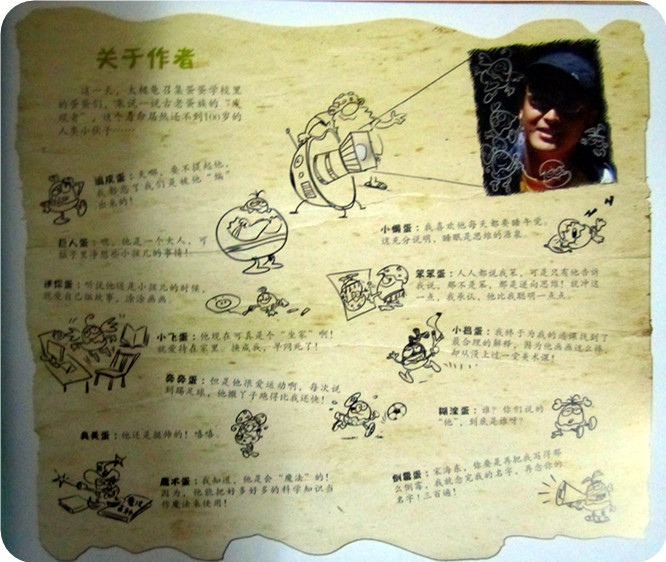 关于作者
这一天，大棍龟召集蛋蛋学校里
的蛋蛋们，来说一说古老蛋族的“发
现者”，这个寿命居然还不到100岁的
人类小伙子……
追疚蛋：天哪，要不提起他，
我都忘了我们是被他“编”
出来的！
巨人蛋：嗯，他是一个大人，可
脑子里净想些小孩儿的事情！
小懒蛋：我喜欢他每天都要睡午觉，
这充分说明，睡眠是思维的源泉。
迷你蛋：听说他还是小孩儿的时候，
就爱自己编故事，涂涂画画。
笨笨蛋：人人都说我笨，可是只有他告诉
我说，那不是笨，那是逆向思维！就冲这
一点，我承认，他比我聪明一点点。
小飞蛋：他现在可真是个“坐家”啊！
就爱待在家里。换成我，早闷死了！
小吕蛋：我终于为我的逃课找到了
最合理的解释，因为他画画这么棒，
却从没上过一堂美术课！
鼻鼻蛋：但是他很爱运动啊，每次说
到踢足球，他撒丫子跑得比我还快！
糊涂蛋：谁？你们说的
“他”，到底是谁呀？
典美蛋：他还是挺帅的！嘻嘻。
魔术蛋：我知道，他是会“魔法”的！
因为，他能把好多好多的科学知识当
作魔法来使用！
倒霉蛋：宋海东，你要是再把我写得那
么倒霉，我就念完我的名字，再念你的
名字！三百遍！